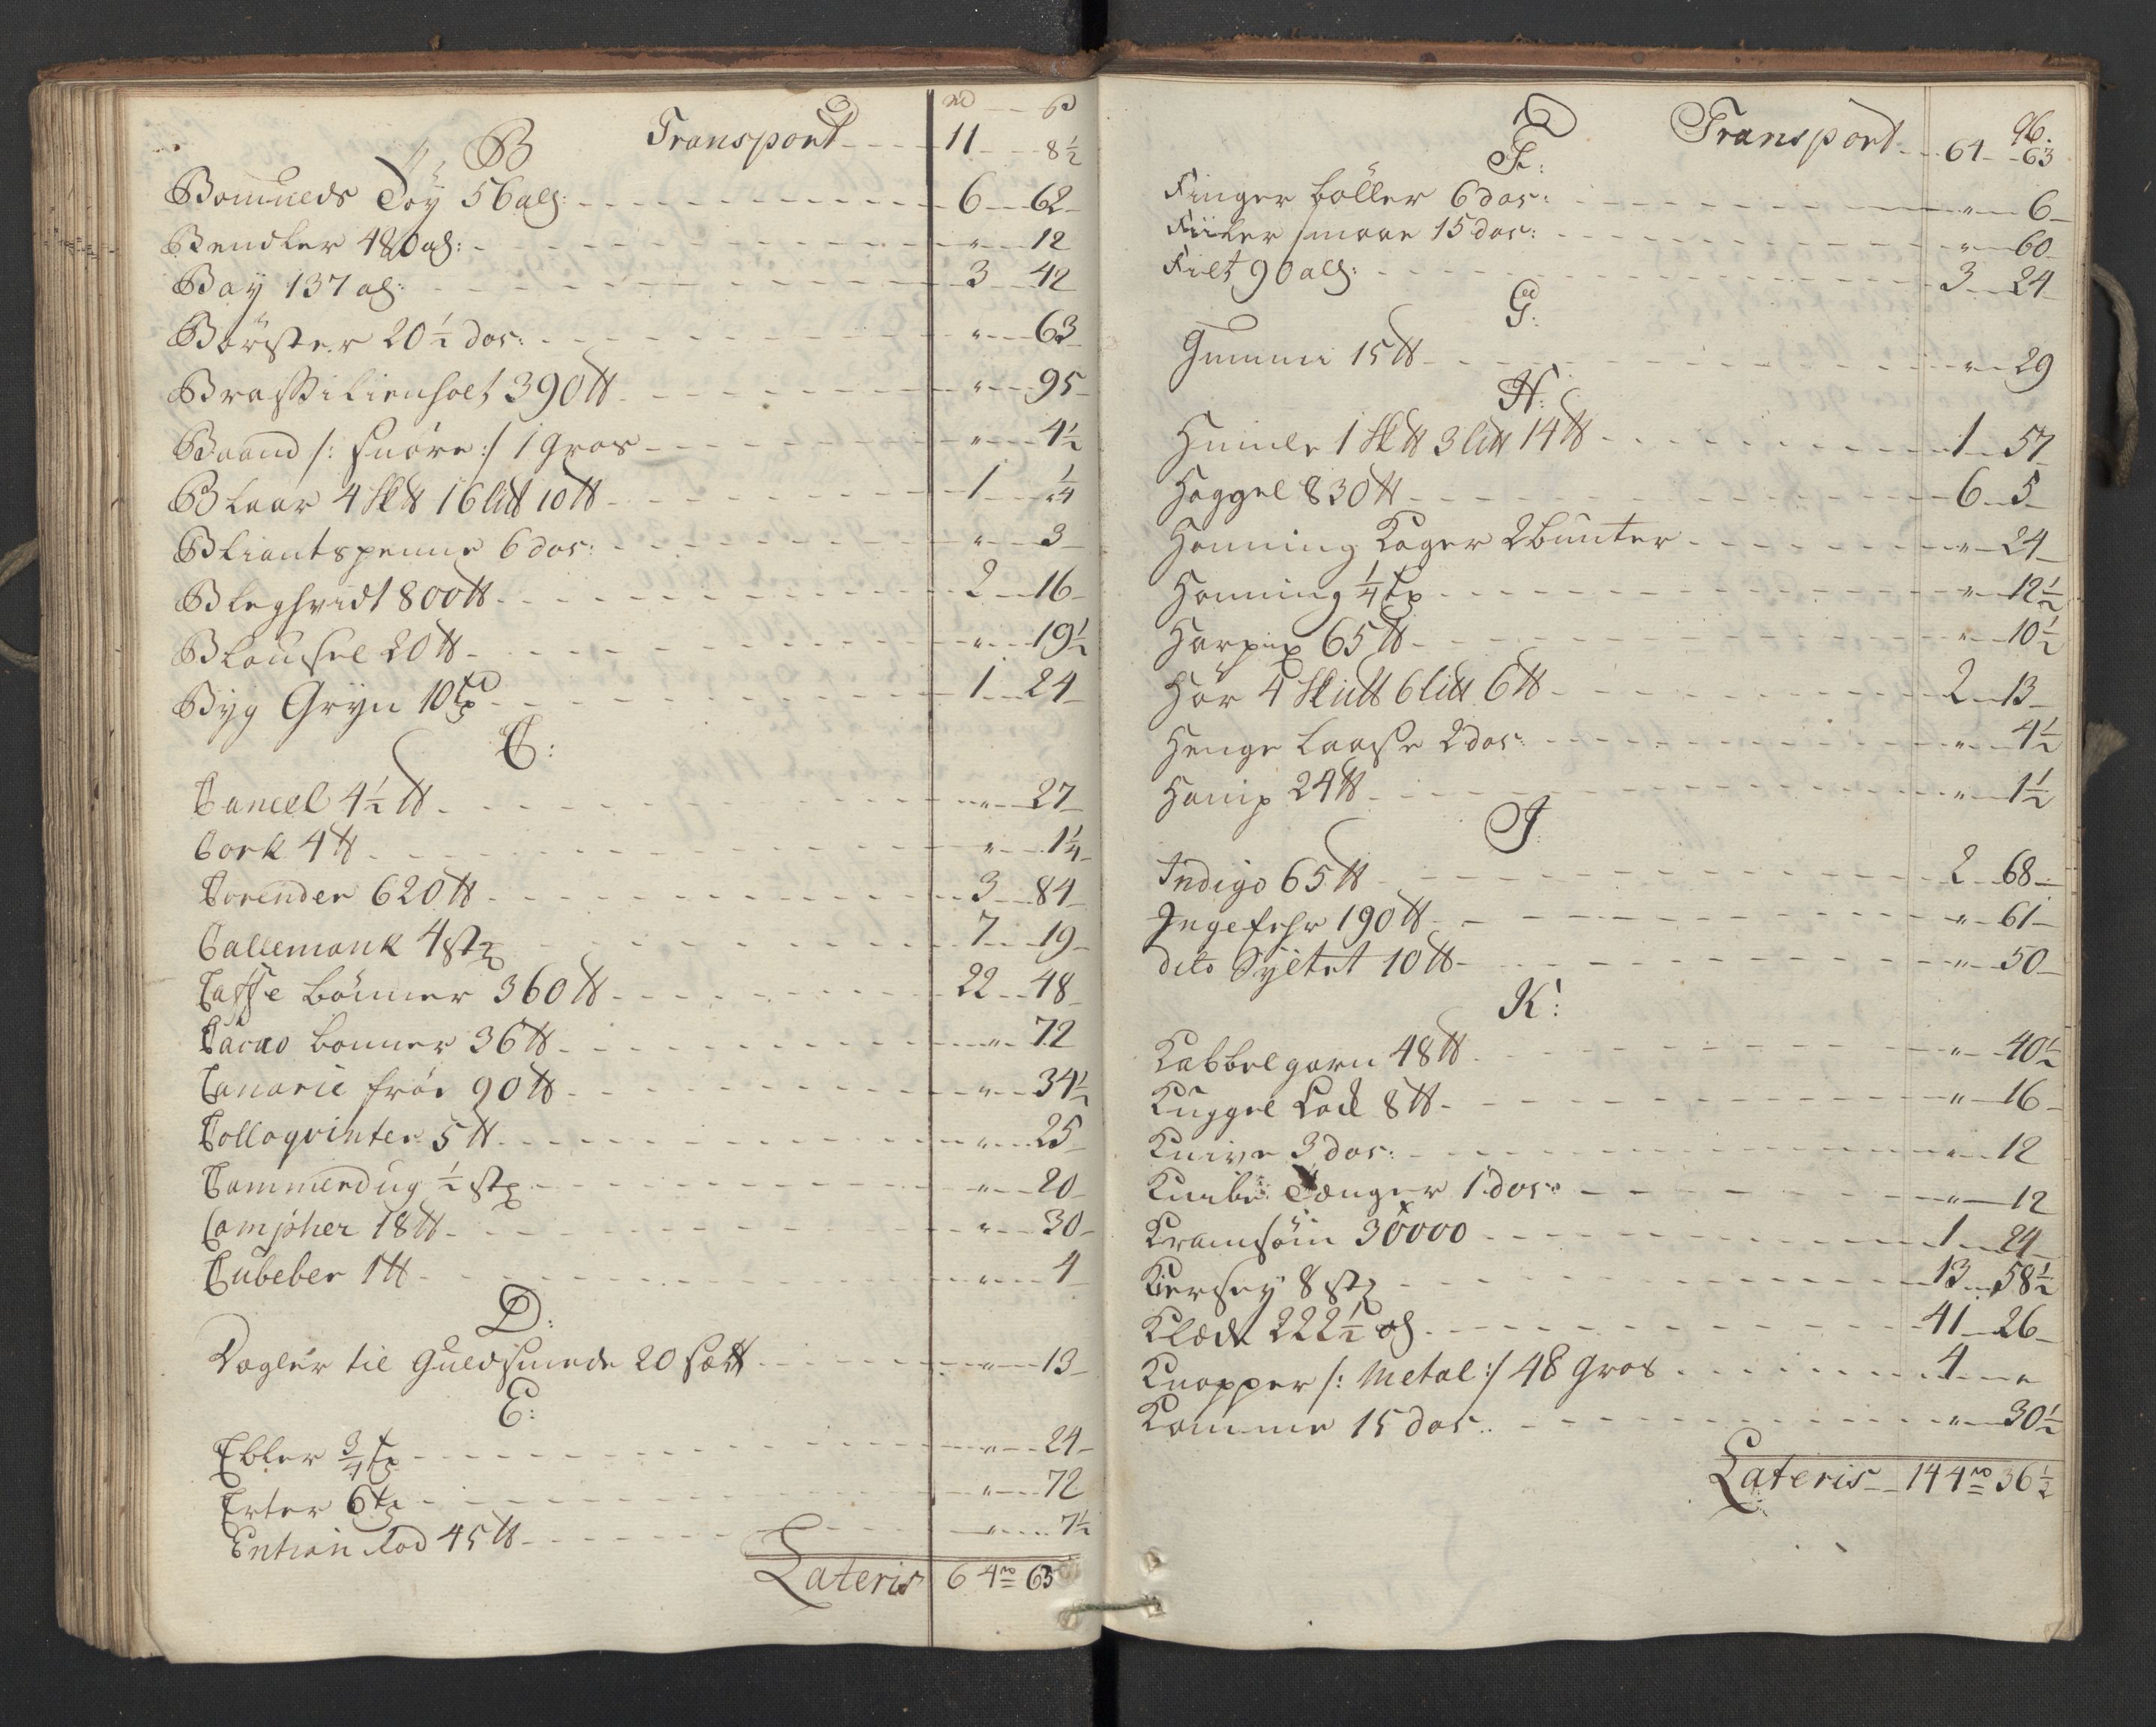 rd ß
B Transport 11 8½
Bomulds Tøy 56 all: 6 62
Bendler 480 al: " 12
Bay 137 al: 3 42
Börster 20½ dos: " 63
Brassilienholt 390 ℔ " 95
Baand /: Snöre :/ 1 Gros " 4½
Blaar 4 Sk℔ 16 Li℔ 10 ℔ 1 ¼
Bliantspenne 6 dos: " 3
Bleghvidt 800 ℔ 2 16
Blousel 20 ℔ " 19½
Byg Gryn 10 tr 1 24
C:
Caneel 4½ ℔ " 27
Cork 4 ℔ " 1¼
Corender 620 ℔ 3 84
Callemank 4 str 7 19
Caffe bönner 360 ℔ 22 48
Cacao bönner 36 ℔ " 72
Canarie fröe 90 ℔ " 34½
Colloqvinter 5 ℔ " 25
Cammerdug ½ str " 20
Campher 18 ℔ " 30
Cubeber 1 ℔ " 4
D:
Dogler til Guldsmede 20 sætt " 13
E:
Ebler ¾ tr " 24
Erter 6 tr " 72
Entian Rod 45 ℔ " 7½
Lateris 64 rd 63
96.
F: Transport 64 63
Finger böller 6 dos: " 6
Fiiler smaae 15 dos: " 60
Filt 90 all: 3 24
G:
Gummi 15 ℔ " 29
H:
Humle 1 Sk℔ 3 Li℔ 14 ℔ 1 57
Haggel 830 ℔ 6 5
Honning Kager 2 bunter " 24
Honning ¼ tr " 12½
Harpix 65 ℔ " 10½
Hör 4 Ski℔ 6 Li℔ 6 ℔ 2 13
Henge Laasse 2 dos: " 4½
Hamp 24 ℔ " 1½
J
Indigo 65 ℔ 2 68
Ingefehr 190 ℔ " 61
dito Syltet 10 ℔ " 50
K:
Kabbelgarn 48 ℔ " 40½
Kuggel Lack 8 ℔ " 16
Knive 3 dos: " 12
Knibe Tænger 1 dos: " 12
Kramsöm 30000 1 24
Kiersey 8 str 13 58½
Klæde 222½ al 41 26
Knapper /: Metal :/ 48 Gros 4 "
Kamme 15 dos: " 30½
Lateris 144 rd 36½